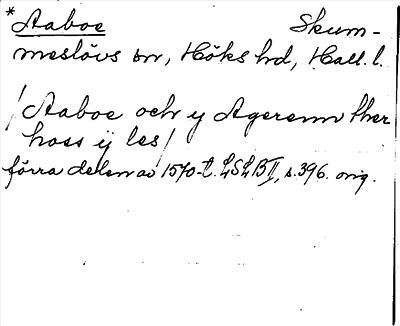 * Aaboe Skum-
meslövs sn, Höks hd, Hall. l.
/Aaboe och y Agerenn ther
hoss ij les/
förra delen av 1570-t. LSLB II, s. 396. orig.